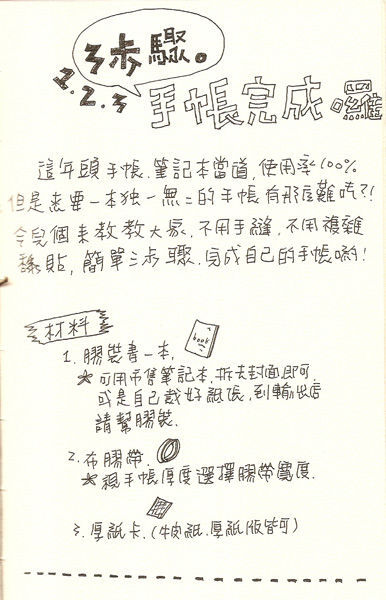 3步驟。
1.2.3
手帳完成囉
這年頭手帳.筆記本當道,使用率100%
但是想要一本独一無二的手帳有那麼難嗎?!
今兒個來教教大家.不用手縫.不用複雜
黏貼,簡單三步驟.完成自己的手帳喲!
材料
book
1. 膠裝書一本,
★可用市售筆記本,拆去封面即可,
或是自己裁好紙張,到輸出店
請幫膠裝.
2. 布膠帶.
★視手帳厚度選擇膠帶寬度.
3. 厚紙卡.(牛皮紙.厚紙板皆可)